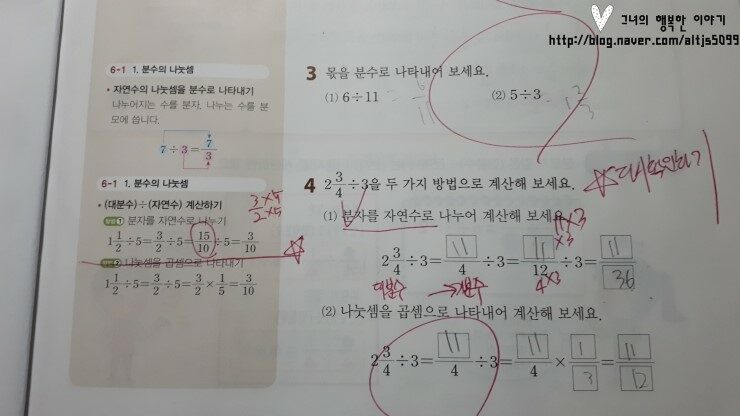 그녀의 행복한 이야기
http://blog.naver.com/altjs5099
6-1 1. 분수의 나눗셈
• 자연수의 나눗셈을 분수로 나타내기
나누어지는 수를 분자, 나누는 수를 분
모에 씁니다.
7÷3=7/3
6-1 1. 분수의 나눗셈
• (대분수)÷(자연수) 계산하기
3×5/2×5
분자를 자연수로 나누기
1 1/2÷5=3/2÷5=15/10÷5=3/10
나눗셈을 곱셈으로 나타내기
1 1/2÷5=3/2÷5=3/2×1/5=3/10
3 몫을 분수로 나타내어 보세요.
(1) 6÷11 = 6/11
(2) 5÷3 = 1 2/3
4 2 3/4÷3을 두 가지 방법으로 계산해 보세요.
(1) 분자를 자연수로 나누어 계산해 보세요.
11×3
×3
2 3/4÷3=11/4÷3=11/12÷3=11/36
4×3
대분수 → 가분수
(2) 나눗셈을 곱셈으로 나타내어 계산해 보세요.
2 3/4÷3=11/4÷3=11/4×1/3=11/12